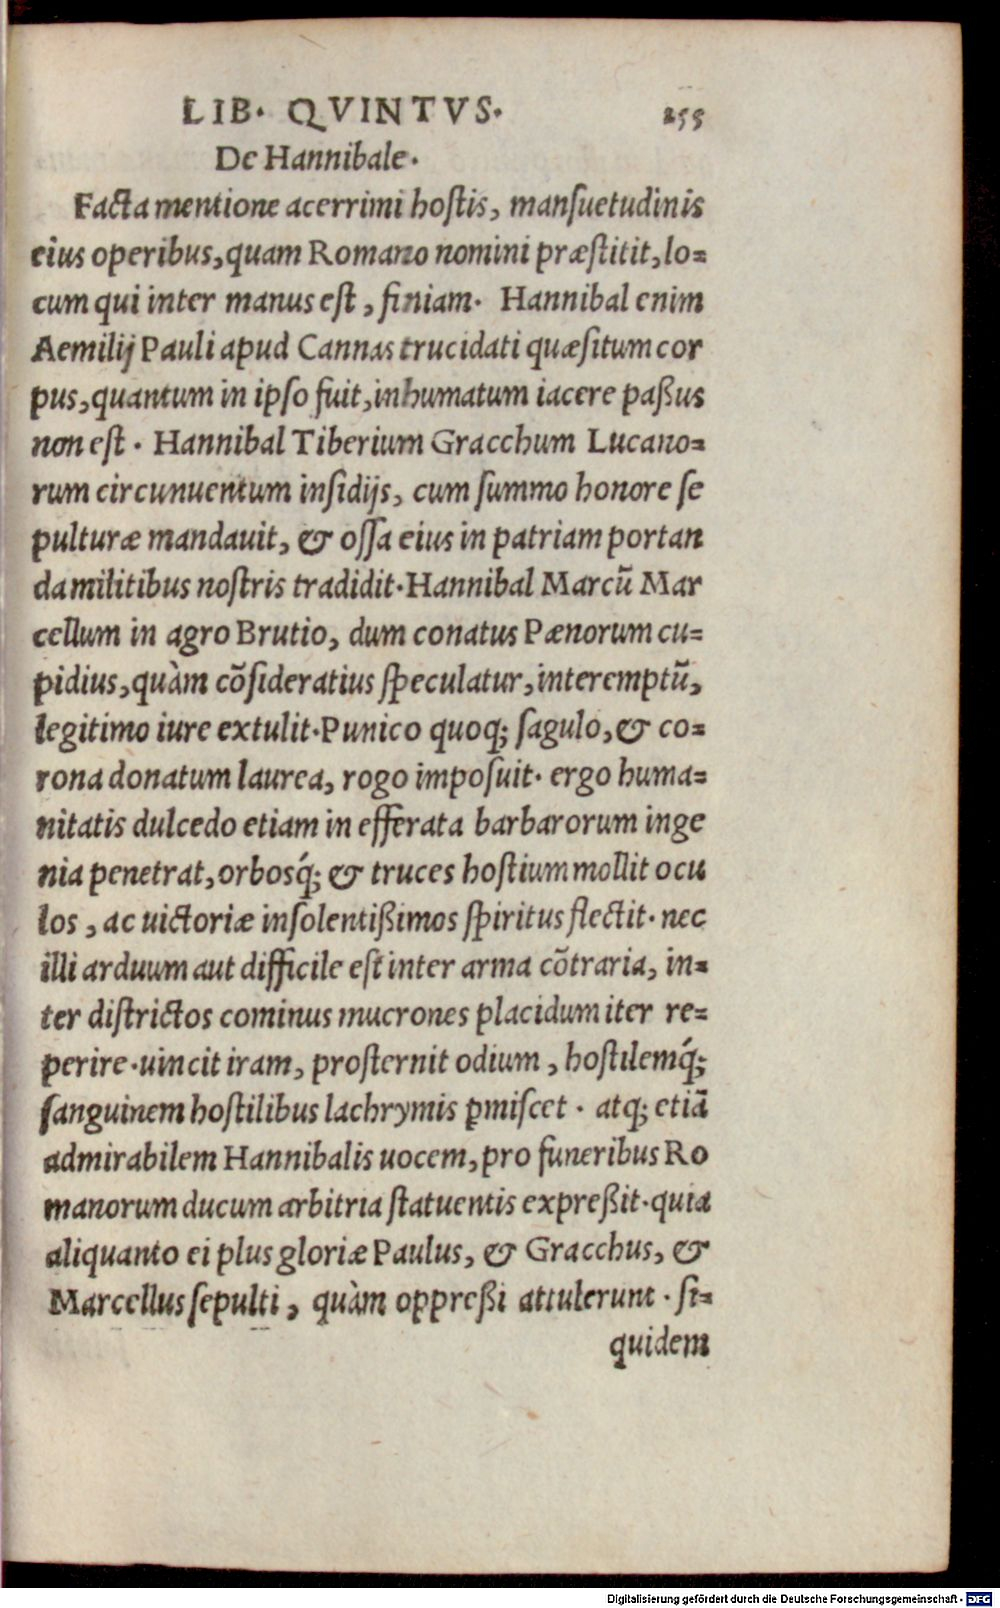 LIB. QVINTVS. 255
De Hannibale.
Facta mentione acerrimi hostis, mansuetudinis
eius operibus, quam Romano nomini præstitit, lo=
cum qui inter manus est, finiam. Hannibal enim
Aemilij Pauli apud Cannas trucidati quæsitum cor
pus, quantum in ipso fuit, inhumatum iacere paßus
non est. Hannibal Tiberium Gracchum Lucano=
rum circunuentum insidijs, cum summo honore se
pulturæ mandauit, & ossa eius in patriam portan
da militibus nostris tradidit. Hannibal Marcũ Mar
cellum in agro Brutio, dum conatus Pænorum cu=
pidius, quàm cõsideratius speculatur, interemptũ,
legitimo iure extulit. Punico quoq; sagulo, & co=
rona donatum laurea, rogo imposuit. ergo huma=
nitatis dulcedo etiam in efferata barbarorum inge
nia penetrat, orbosq́; & truces hostium mollit ocu
los, ac uictoriæ insolentißimos spiritus flectit. nec
illi arduum aut difficile est inter arma cõtraria, in=
ter districtos cominus mucrones placidum iter re=
perire. uincit iram, prosternit odium, hostilemq́;
sanguinem hostilibus lachrymis ꝑmiscet. atq; etiã
admirabilem Hannibalis uocem, pro funeribus Ro
manorum ducum arbitria statuentis expreßit. quia
aliquanto ei plus gloriæ Paulus, & Gracchus, &
Marcellus sepulti, quàm oppreßi attulerunt. si=
quidem
Digitalisierung gefördert durch die Deutsche Forschungsgemeinschaft - DFG